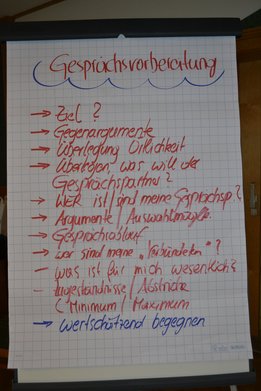 Gesprächsvorbereitung
→ Ziel ?
→ Gegenargumente
→ Überlegung Örtlichkeit
→ Überlegen, was will der
Gesprächspartner?
→ WER ist / sind meine Gesprächsp.?
→ Argumente / Auswahlmögl.
→ Gesprächsablauf
→ wer sind meine "Verbündeten"?
- was ist für mich wesentlich?
- Zugeständnisse / Abstriche
( Minimum / Maximum
→ wertschätzend begegnen